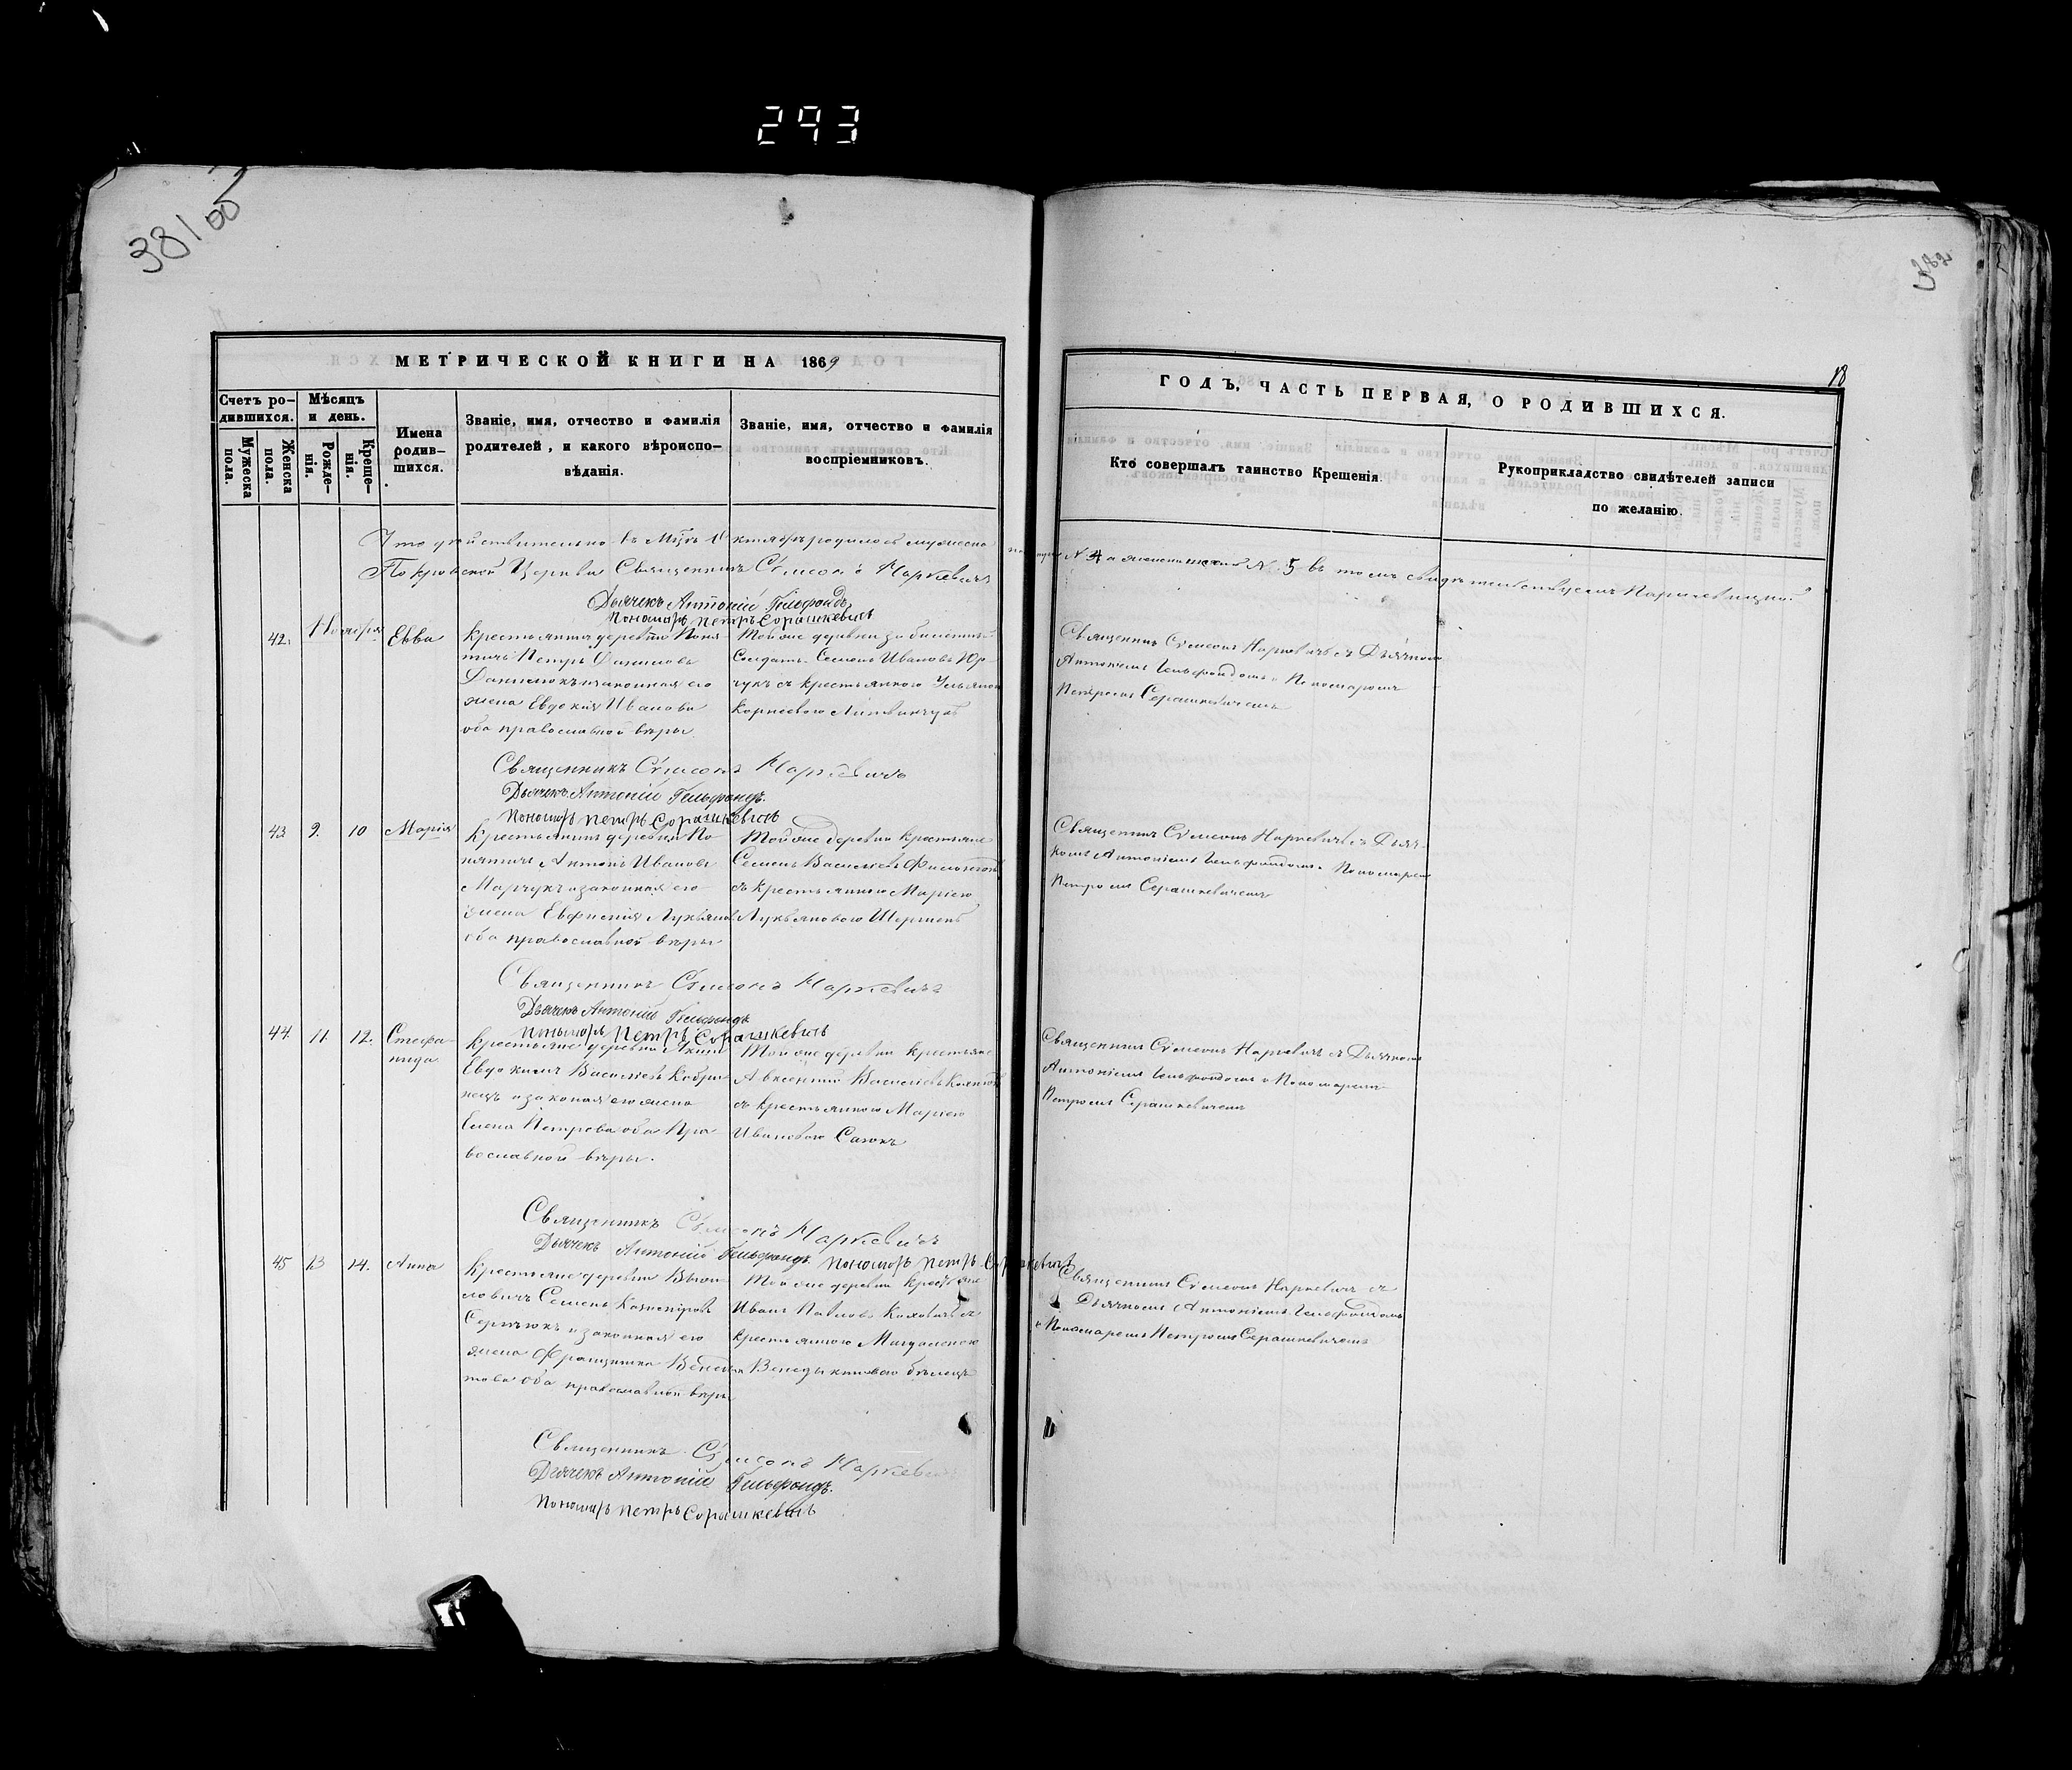 293
38100
382
МЕТРИЧЕСКОЙ КНИГИ НА 1869
ГОДЪ, ЧАСТЬ ПЕРВАЯ, О РОДИВШИХСЯ.
18
Счетъ ро-
дившихся.
Мужеска
пола.
Женска
пола.
Мѣсяцъ
и день.
Рожде-
нія.
Креще-
нія.
Имена
родив-
шихся.
Званіе, имя, отчество и фамилія
родителей, и какого вѣроиспо-
вѣданія.
Званіе, имя, отчество и фамилія
воспріемниковъ.
Кто совершалъ таинство Крещенія.
Рукоприкладство свидѣтелей записи
по желанію.
Что дѣйствительно въ Мцѣ Октябрѣ родилось мужеска N. 4 а женска N. 5 въ томъ свидѣтельствуемъ
Покровской Церкви Священникъ Сѵмеонъ Маркевичъ
Дьячекъ Антоній Гельфондъ
Пономарь Петръ Сорашкевичъ
42. Ноября
Евва
Крестьянинъ деревни
Петръ
законная его
жена Евдокія Иванова
оба православной вѣры.
Той же деревни
Солдатъ Семенъ Ивановъ
чукъ съ крестьянкою
Корнеевою
Священникъ Сѵмеонъ Маркевичъ съ Дьячкомъ
Антоніемъ Гельфондомъ и Пономаремъ
Петромъ Серашкевичемъ
Священникъ Сѵмеонъ Маркевичъ
Дьячекъ Антоній Гельфондъ.
Пономарь Петръ Сорашкевичъ
43 9. 10 Марія
Крестьянинъ деревни По-
нятичъ Антонъ Ивановъ
Марчукъ и законная его
жена Евфимія Лукьянова
оба православной вѣры
Той же деревни крестьяне
Семенъ Василіевъ
съ крестьянкою Маріею
Лукьяновою
Священникъ Сѵмеонъ Маркевичъ съ Дьяч-
комъ Антоніемъ Гельфондомъ и Пономаремъ
Петромъ Серашкевичемъ
Священникъ Сѵмеонъ Маркевичъ
Дьячекъ Антоній Гельфондъ
Пономарь Петръ Сорашкевичъ
44. 11 12. Стефа-
нида
Крестьяне деревни
Евдокимъ Василіевъ Кобри-
нецъ и законая его жена
Елена Петрова оба Пра-
вославной вѣры.
Той же деревни крестьяне
Авксентій Василіевъ
съ крестьянкою Маріею
Ивановою Саюкъ
Священникъ Сѵмеонъ Маркевичъ съ Дьячкомъ
Антоніемъ Гельфондомъ и Пономаремъ
Петромъ Серашкевичемъ
Священникъ Сѵмеонъ Маркевичъ
Дьячекъ Антоній Гельфондъ. Пономарь Петръ Сорашкевичъ
45 13 14. Анна
Крестьяне деревни
Семенъ
и законная его
жена Францишка
оба православной вѣры
Той же деревни Крестьяне
Иванъ Павловъ
крестьянкою Магдаленою
Венедыктовою
Священникъ Сѵмеонъ Маркевичъ съ
Дьячкомъ Антоніемъ Гельфондомъ
и Пономаремъ Петромъ Серашкевичемъ
Священникъ Сѵмеонъ Маркевичъ
Дьячекъ Антоній Гельфондъ.
Пономарь Петръ Сорашкевичъ